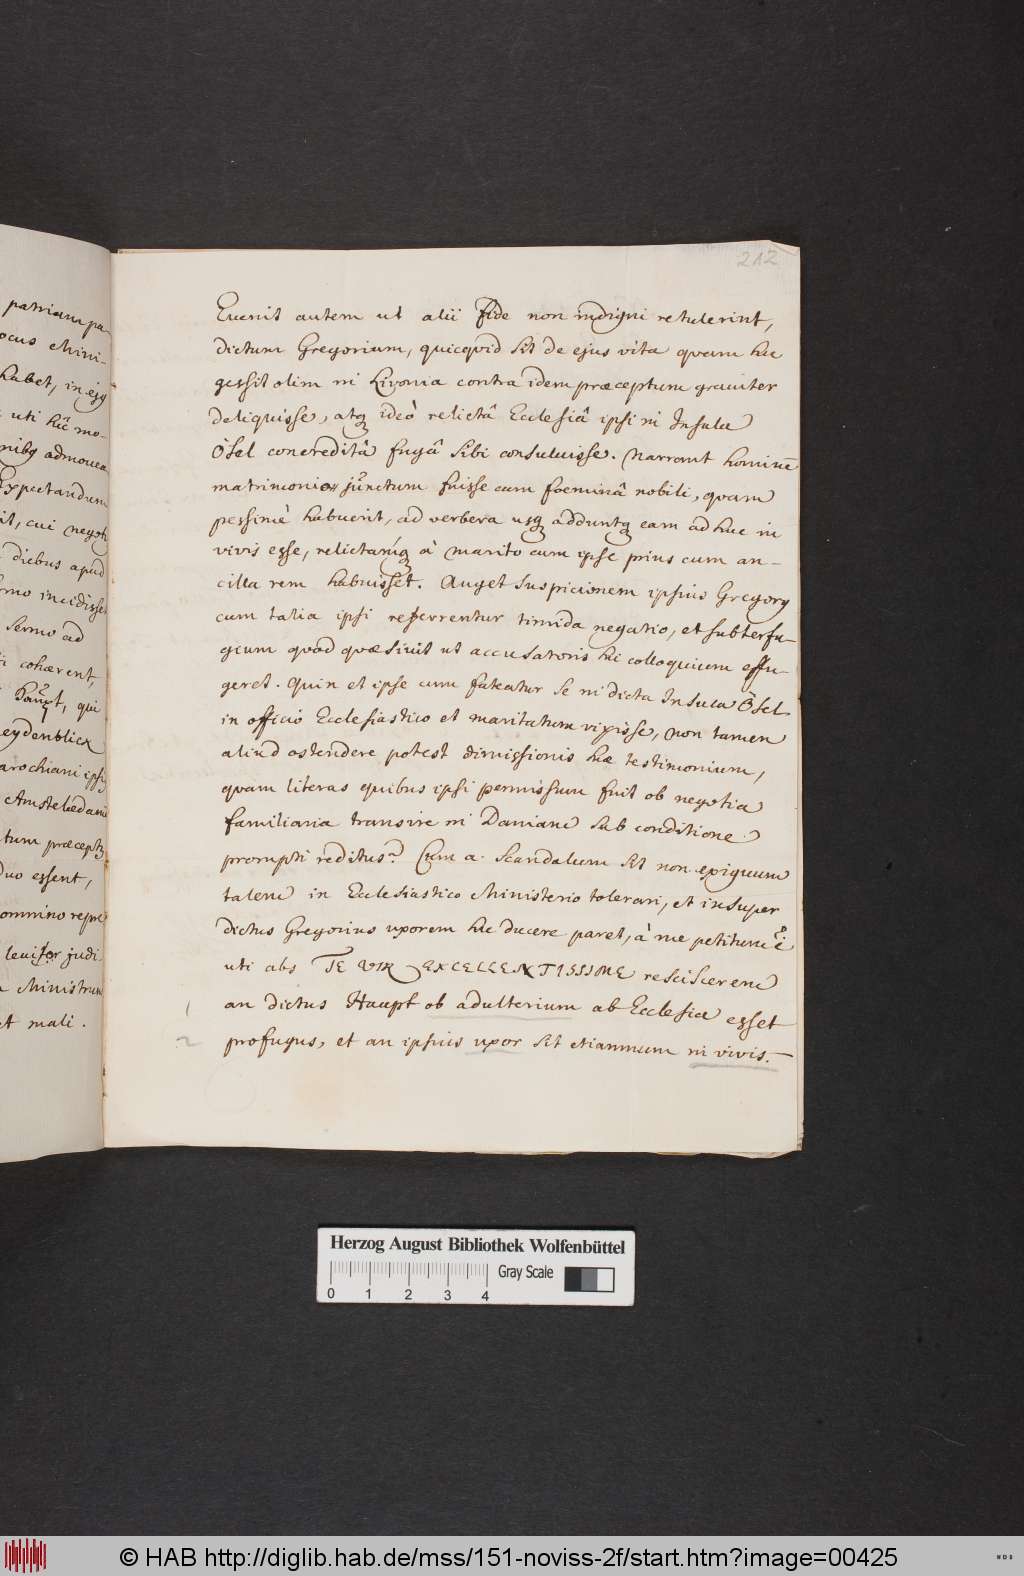 212
patriam pa-
ocus Mini-
habet, in ejꝫ
uti hûc mo-
nibꝫ admovea
Expectandum
it, cui negoti
diebus apud
rmo incidisse
sermo ad
cohærent,
Haupt, qui
eydenblick
arochiani ipsi
Amstelædami
tum præcepti
duo essent,
omnino repre
leviter judi
Ministrum
et mali.
Evenit autem ut alii fide non indigni retulerint,
dictum Gregorium, quicqvid sit de ejus vita qvam hic
gessit olim in Livonia contra idem præceptum graviter
deliquisse, atqꝫ ideò relictâ Ecclesiâ ipsi in Insula
Ösel concreditâ fugâ sibi consuluisse. Narrant hominē
matrimonio junctum fuisse cum foeminâ nobili, qvam
pessimè habuerit, ad verbera usqꝫ adduntqꝫ eam adhuc in
vivis esse, relictamqꝫ à marito cum ipse prius cum an-
cilla rem habuisset. Auget suspicionem ipsius Gregorij
cum talia ipsi referrentur timida negatio, et subterfu-
gium qvod qvæsivit ut accusatoris hic colloquium effu-
geret. Quin et ipse cum fateatur se in dicta Insula Ösel
in officio Ecclesiastico et maritatum vixisse, non tamen
aliud ostendere potest dimissionis hic testimonium,
qvam literas quibus ipsi permissum fuit ob negotia
familiaria transire in Daniam sub conditione
prompti reditus. Cum a. scandalum sit non exiguum
talem in Ecclesiastico Ministerio tolerari, et insuper
dictus Gregorius uxorem hic ducere paret, à me petitum ē
uti abs TE VIR EXCELLENTISSIME resciscerem
an dictus Haupt ob adulterium ab Ecclesia esset
profugus, et an ipsius uxor sit etiamnum in vivis.
Herzog August Bibliothek Wolfenbüttel
Gray Scale
0 1 2 3 4
© HAB http://diglib.hab.de/mss/151-noviss-2f/start.htm?image=00425